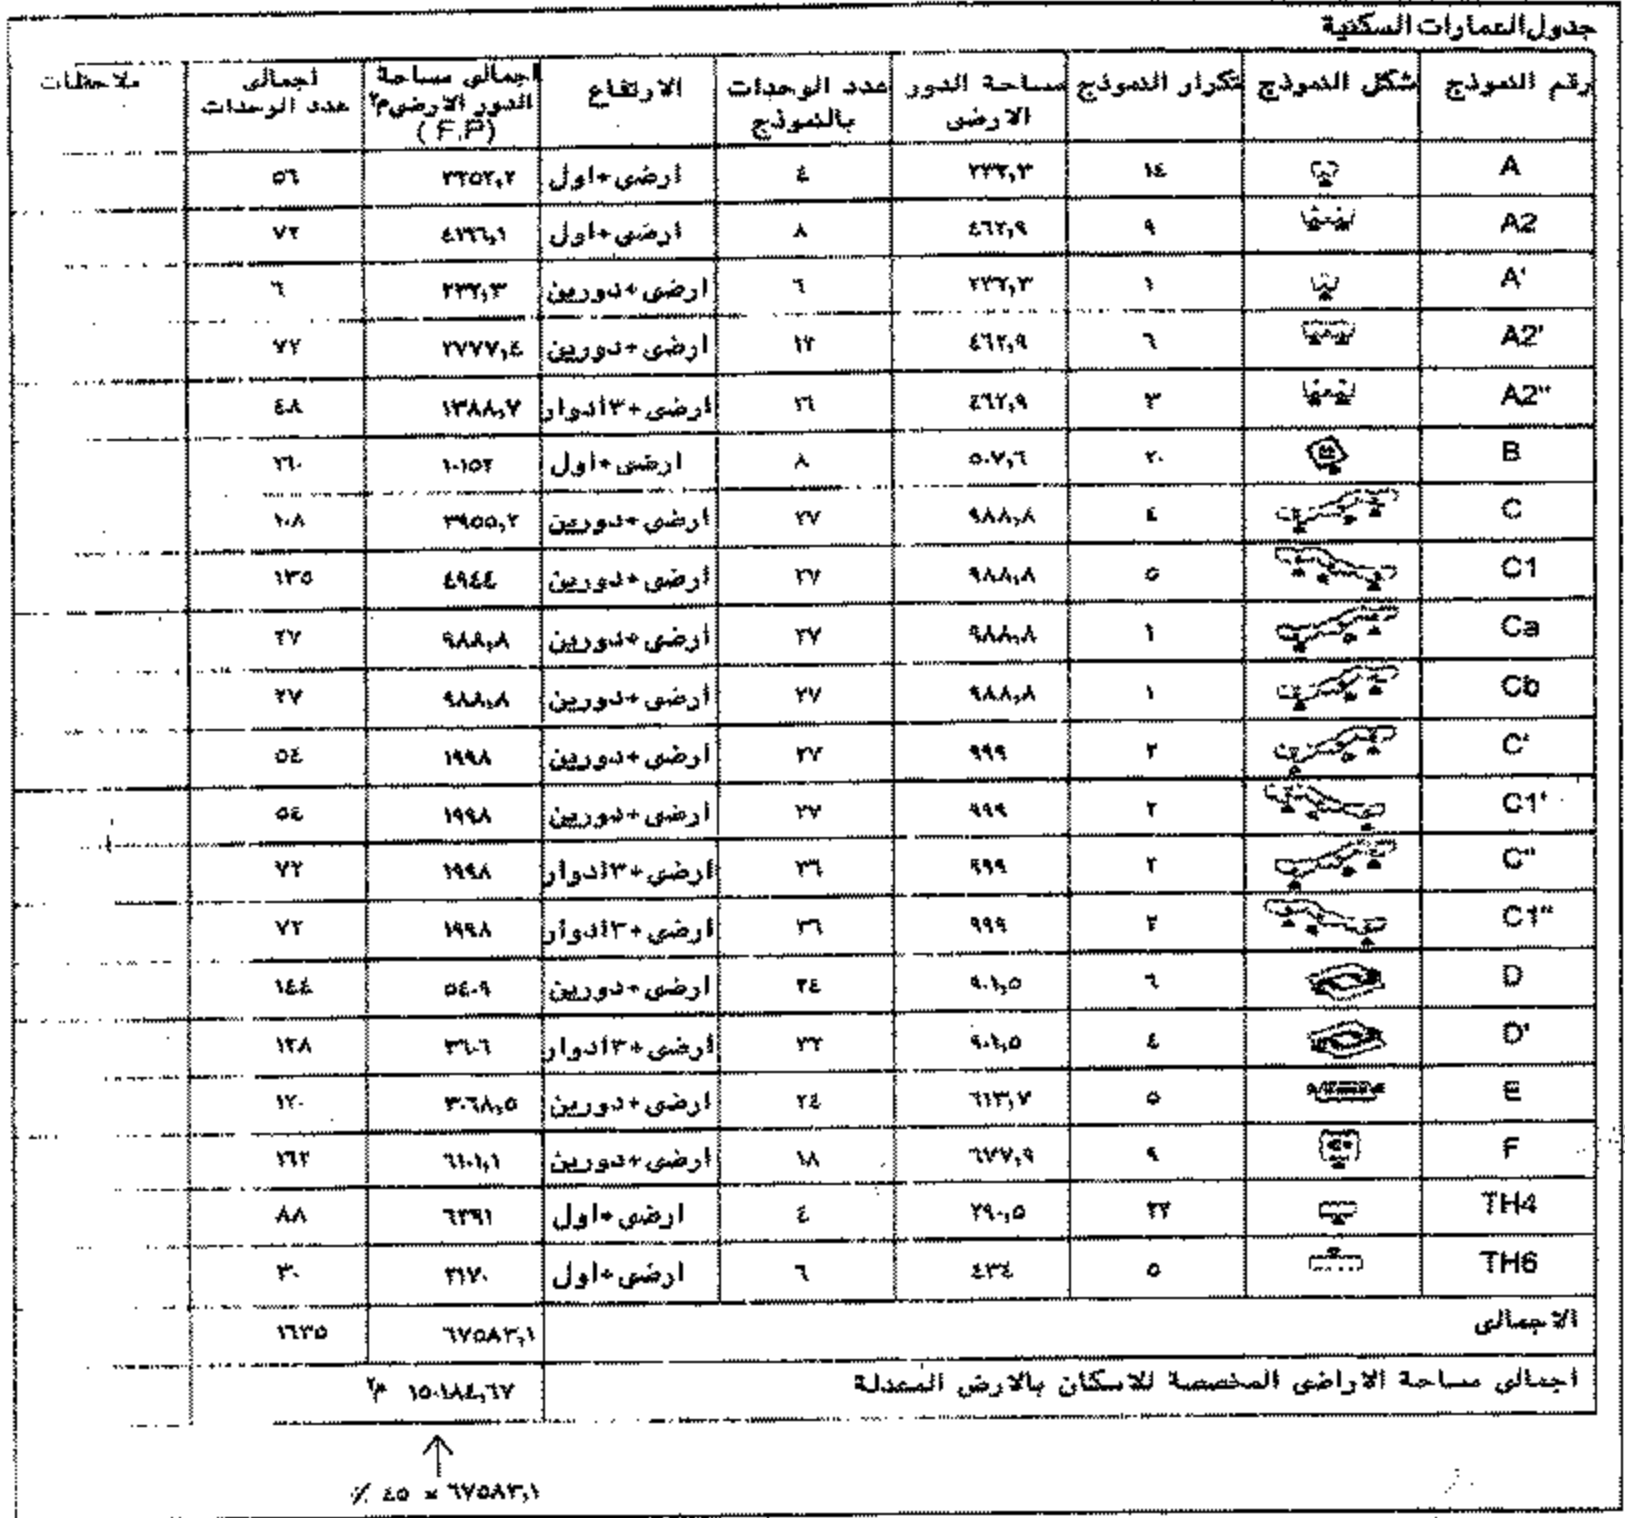 جدول العمارات السكنية
رقم النموذج شكل النموذج تكرار النموذج مساحة الدور الارضى عدد الوحدات بالنموذج الارتفاع اجمالى مساحة الدور الارضى م٢ (F.P) اجمالى عدد الوحدات ملاحظات
A ١٤ ٢٣٢,٣ ٤ ارضى+اول ٣٢٥٢,٢ ٥٦
A2 ٩ ٤٦٢,٩ ٨ ارضى+اول ٤١٦٦,١ ٧٢
A' ١ ٢٣٢,٣ ٦ ارضى+دورين ٢٣٢,٣ ٦
A2' ٦ ٤٦٢,٩ ١٢ ارضى+دورين ٢٧٧٧,٤ ٧٢
A2" ٣ ٤٦٢,٩ ١٦ ارضى+٣أدوار ١٣٨٨,٧ ٤٨
B ٢٠ ٥٠٧,٦ ٨ ارضى+اول ١٠١٥٢ ١٦٠
C ٤ ٩٨٨,٨ ٢٧ ارضى+دورين ٣٩٥٥,٢ ١٠٨
C1 ٥ ٩٨٨,٨ ٢٧ ارضى+دورين ٤٩٤٤ ١٣٥
Ca ١ ٩٨٨,٨ ٢٧ ارضى+دورين ٩٨٨,٨ ٢٧
Cb ١ ٩٨٨,٨ ٢٧ ارضى+دورين ٩٨٨,٨ ٢٧
C' ٢ ٩٩٩ ٢٧ ارضى+دورين ١٩٩٨ ٥٤
C1' ٢ ٩٩٩ ٢٧ ارضى+دورين ١٩٩٨ ٥٤
C" ٢ ٩٩٩ ٣٦ ارضى+٣أدوار ١٩٩٨ ٧٢
C1" ٢ ٩٩٩ ٣٦ ارضى+٣أدوار ١٩٩٨ ٧٢
D ٦ ٩٠١,٥ ٢٤ ارضى+دورين ٥٤٠٩ ١٤٤
D' ٤ ٩٠١,٥ ٣٢ ارضى+٣أدوار ٣٦٠٦ ١٢٨
E ٥ ٦١٣,٧ ٢٤ ارضى+دورين ٣٠٦٨,٥ ١٢٠
F ٩ ٦٧٧,٩ ١٨ ارضى+دورين ٦١٠١,١ ١٦٢
TH4 ٢٢ ٢٩٠,٥ ٤ ارضى+اول ٦٣٩١ ٨٨
TH6 ٥ ٤٣٤ ٦ ارضى+اول ٢١٧٠ ٣٠
الاجمالى ٦٧٥٨٣,١ ١٦٣٥
اجمالى مساحة الاراضى المخصصة للاسكان بالارض المعدلة ١٥٠١٨٤,٦٧ م٢
٦٧٥٨٣,١ = ٤٥ ٪